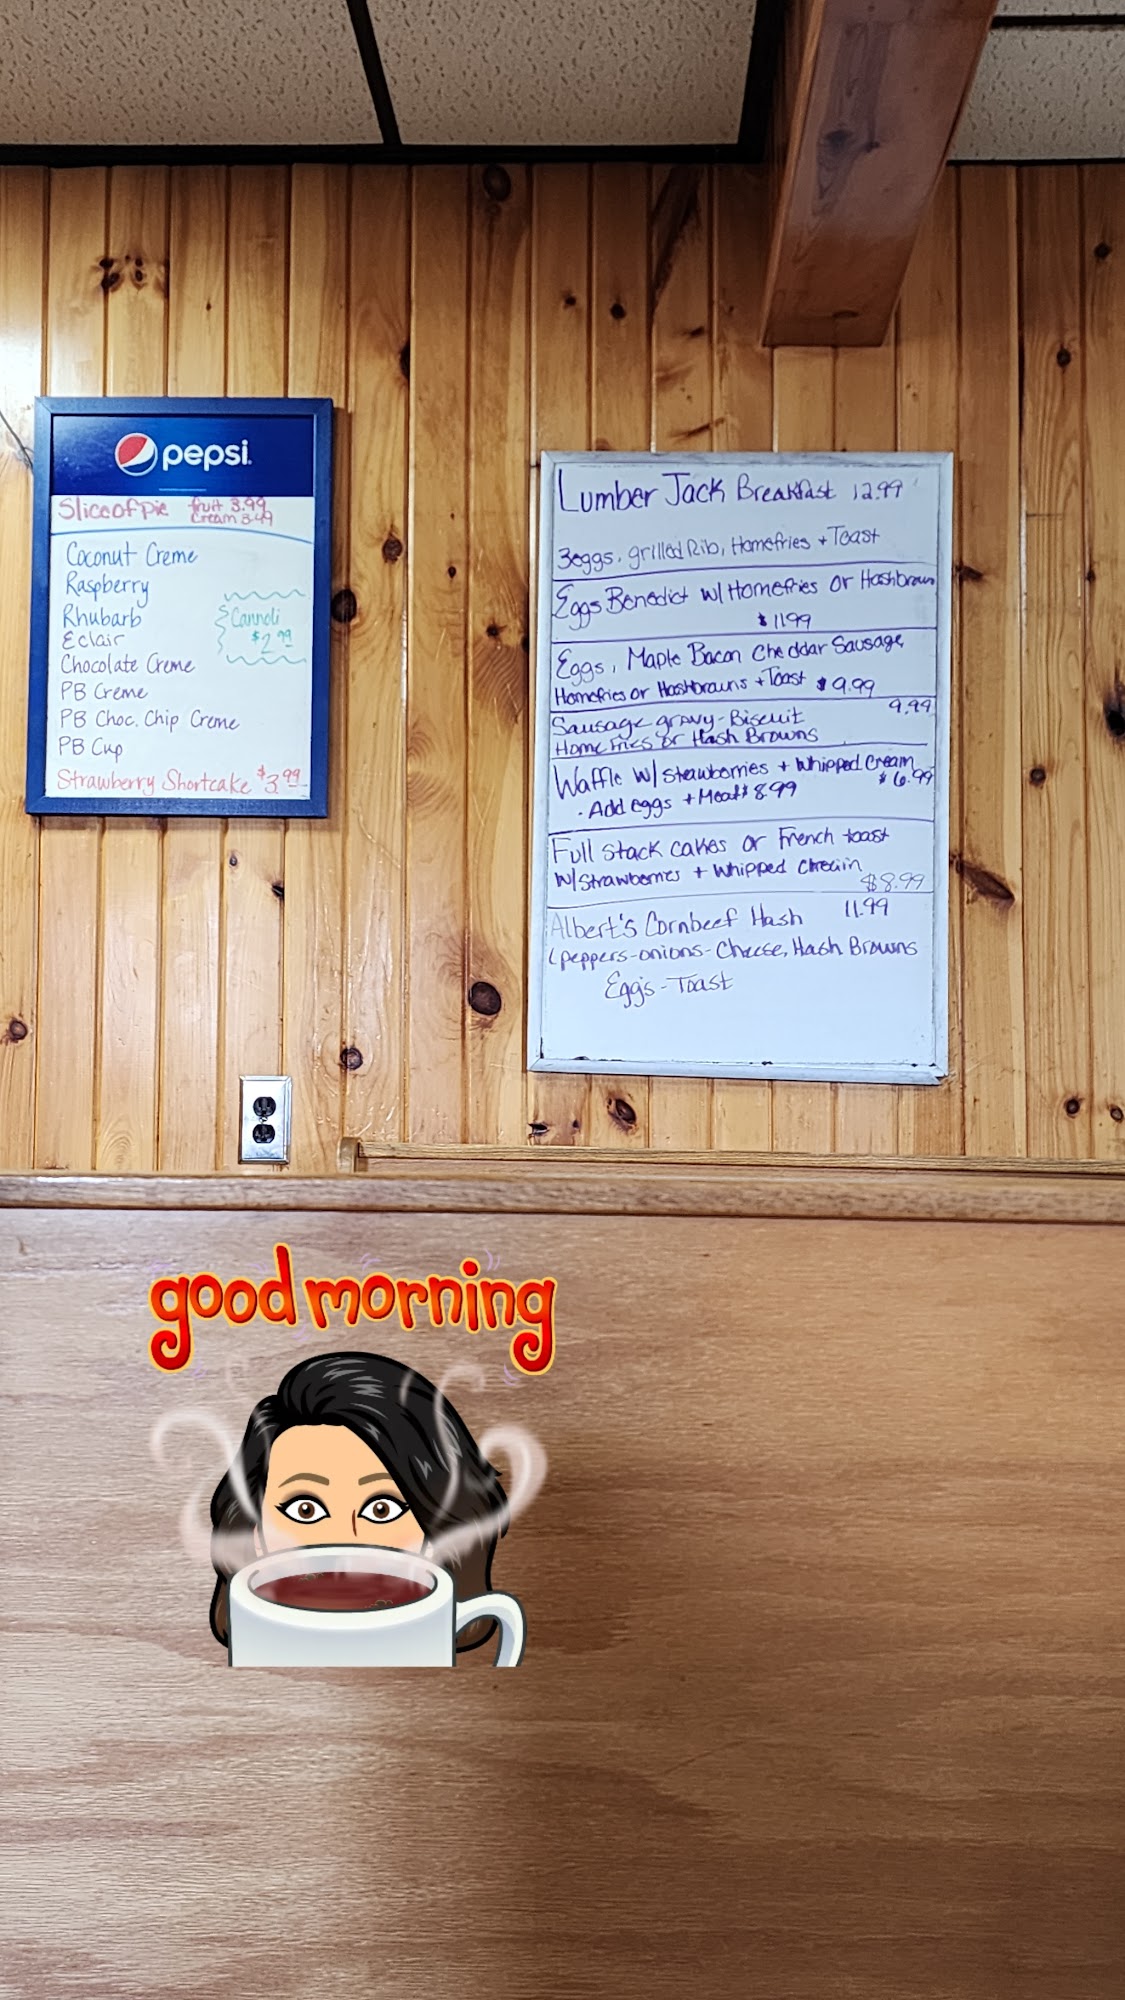 pepsi
Slice of pie fruit 3.99
cream 3.49
Coconut Creme
Raspberry
Rhubarb
Eclair
Chocolate Creme
PB Creme
PB Choc. Chip Creme
PB Cup
Strawberry Shortcake $3.99
Cannoli
$2.99
Lumber Jack Breakfast 12.99
3eggs, grilled Rib, Homefries + Toast
Eggs Benedict w/ Homefries or Hashbrown
$11.99
Eggs, Maple Bacon Cheddar Sausage
Homefries or Hashbrowns + Toast $9.99
Sausage gravy-Biscuit 9.99
Home Fries or Hash Browns
Waffle w/ Strawberries + Whipped Cream
$6.99
· Add eggs + Meat $8.99
Full Stack cakes or French toast
w/ Strawberries + Whipped Cream
$8.99
Albert's Cornbeef Hash 11.99
(peppers-onions-Cheese, Hash Browns
Eggs - Toast
good morning